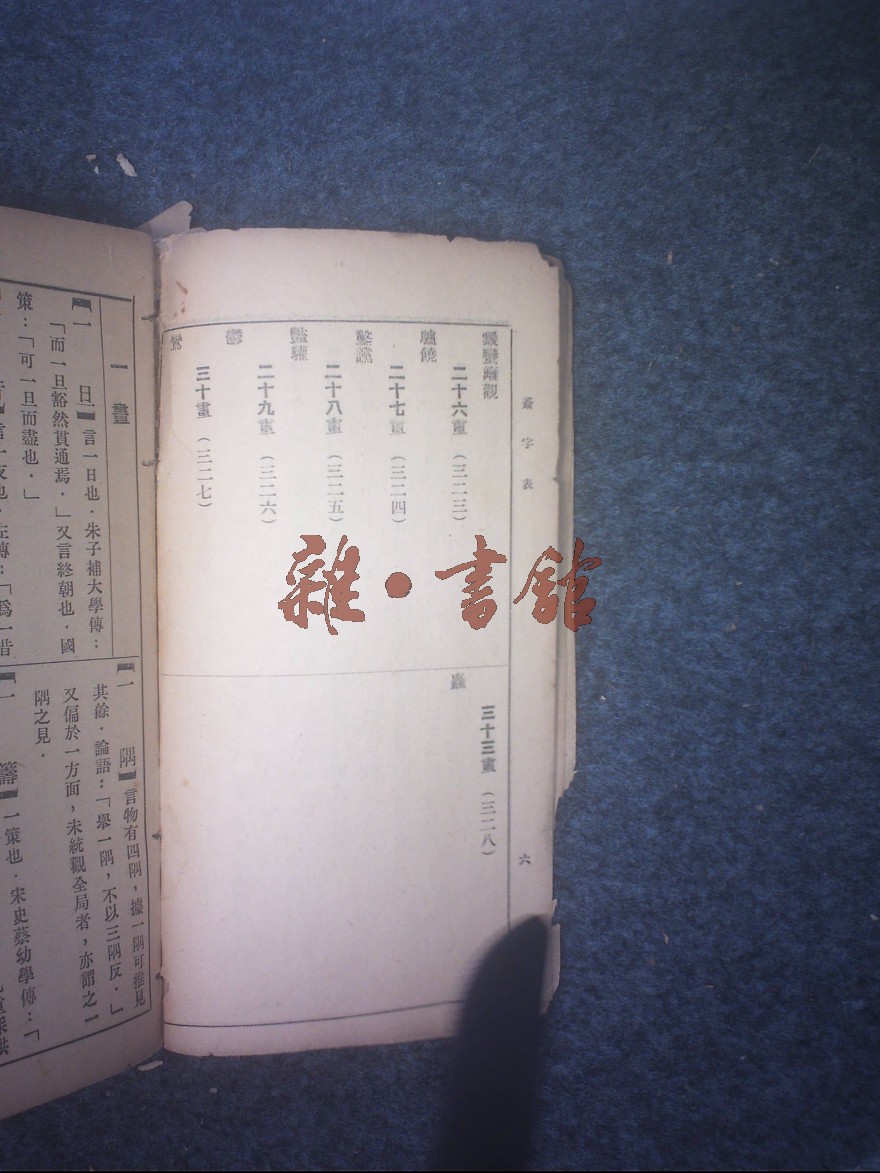 叢字表
觀
二十六畫（三二三）
驢饒
二十七畫（三二四）
二十八畫（三二五）
豔驩
二十九畫（三二六）
鬱
三十畫（三二七）
三十三畫（三二八）
六
雜·書館
一畫
【一旦】言一日也．朱子補大學傳：
「而一旦豁然貫通焉．」又言終朝也．國
策：「可一旦而盡也．」
言一夜也．左傳：「爲一昔
【一隅】言物有四隅，據一隅可推見
其餘．論語：「舉一隅，不以三隅反．」
又偏於一方面，未統觀全局者，亦謂之一
隅之見．
【一籌】一策也．宋史蔡幼學傳：「